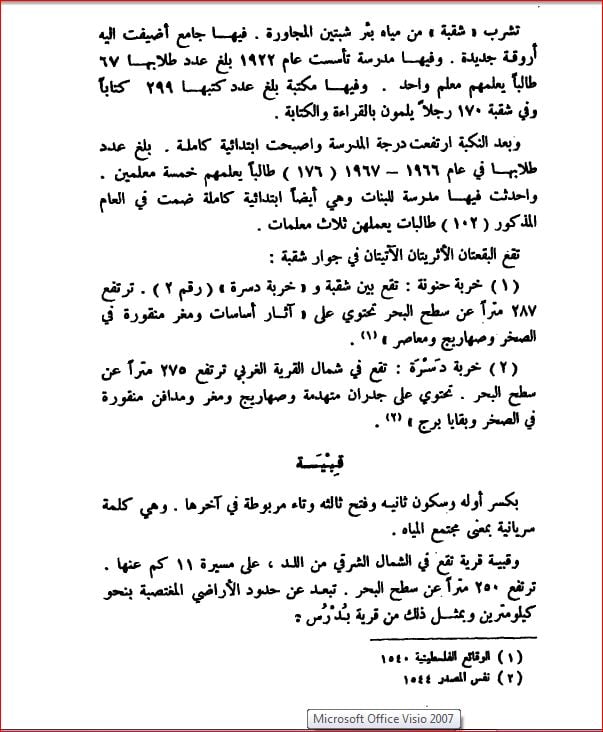 تشرب « شقبة » من مياه بئر شبتين المجاورة . فيها جامع أضيفت اليه
أروقة جديدة . وفيها مدرسة تأسست عام ١٩٢٢ بلغ عدد طلابها ٦٧
طالباً يعلمهم معلم واحد . وفيها مكتبة بلغ عدد كتبها ٢٩٩ كتاباً
وفي شقبة ١٧٠ رجلاً يلمون بالقراءة والكتابة .
وبعد النكبة ارتفعت درجة المدرسة واصبحت ابتدائية كاملة . بلغ عدد
طلابها في عام ١٩٦٦ – ١٩٦٧ ( ١٧٦ ) طالباً يعلمهم خمسة معلمين .
واحدثت فيها مدرسة للبنات وهي أيضاً ابتدائية كاملة ضمت في العام
المذكور ( ١٠٢ ) طالبات يعملهن ثلاث معلمات .
تقع البقعتان الأثريتان الآتيتان في جوار شقبة :
( ١ ) خربة حنونة : تقع بين شقبة و « خربة دسرة » ( رقم ٢ ) . ترتفع
٢٨٧ متراً عن سطح البحر تحتوي على « آثار أساسات ومغر منقورة في
الصخر وصهاريج ومعاصر » (١) .
( ٢ ) خربة دَسْرَة : تقع في شمال القرية الغربي ترتفع ٢٧٥ متراً عن
سطح البحر . تحتوي على جدران متهدمة وصهاريج ومغر ومدافن منقورة
في الصخر وبقايا برج » (٢) .
قِبْيَة
بكسر أوله وسكون ثانيه وفتح ثالثه وتاء مربوطة في آخرها . وهي كلمة
سريانية بمعنى مجتمع المياه .
وقبية قرية تقع في الشمال الشرقي من اللد ، على مسيرة ١١ كم عنها .
ترتفع ٢٥٠ متراً عن سطح البحر . تبعد عن حدود الأراضي المغتصبة بنحو
كيلومترين وبمثل ذلك من قرية بُدْرُس .
( ١ ) الوقائع الفلسطينية ١٥٤٠
( ٢ ) نفس المصدر ١٥٤٤
Microsoft Office Visio 2007